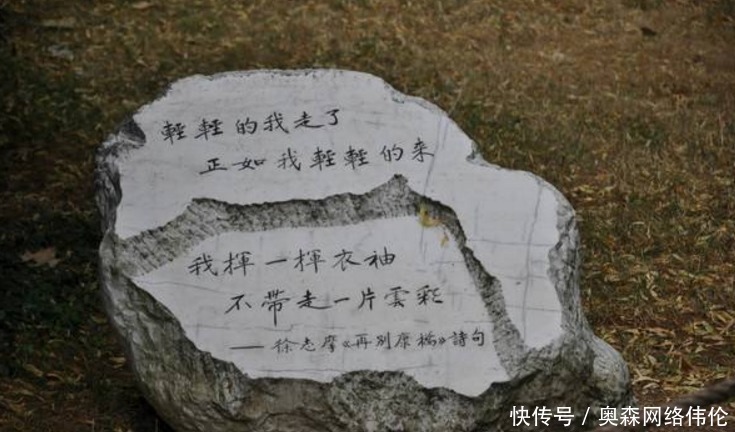 輕輕的我走了
正如我輕輕的来
我揮一揮衣袖
不帶走一片雲彩
——徐志摩《再别康橋》詩句
快传号/奥森网络伟伦